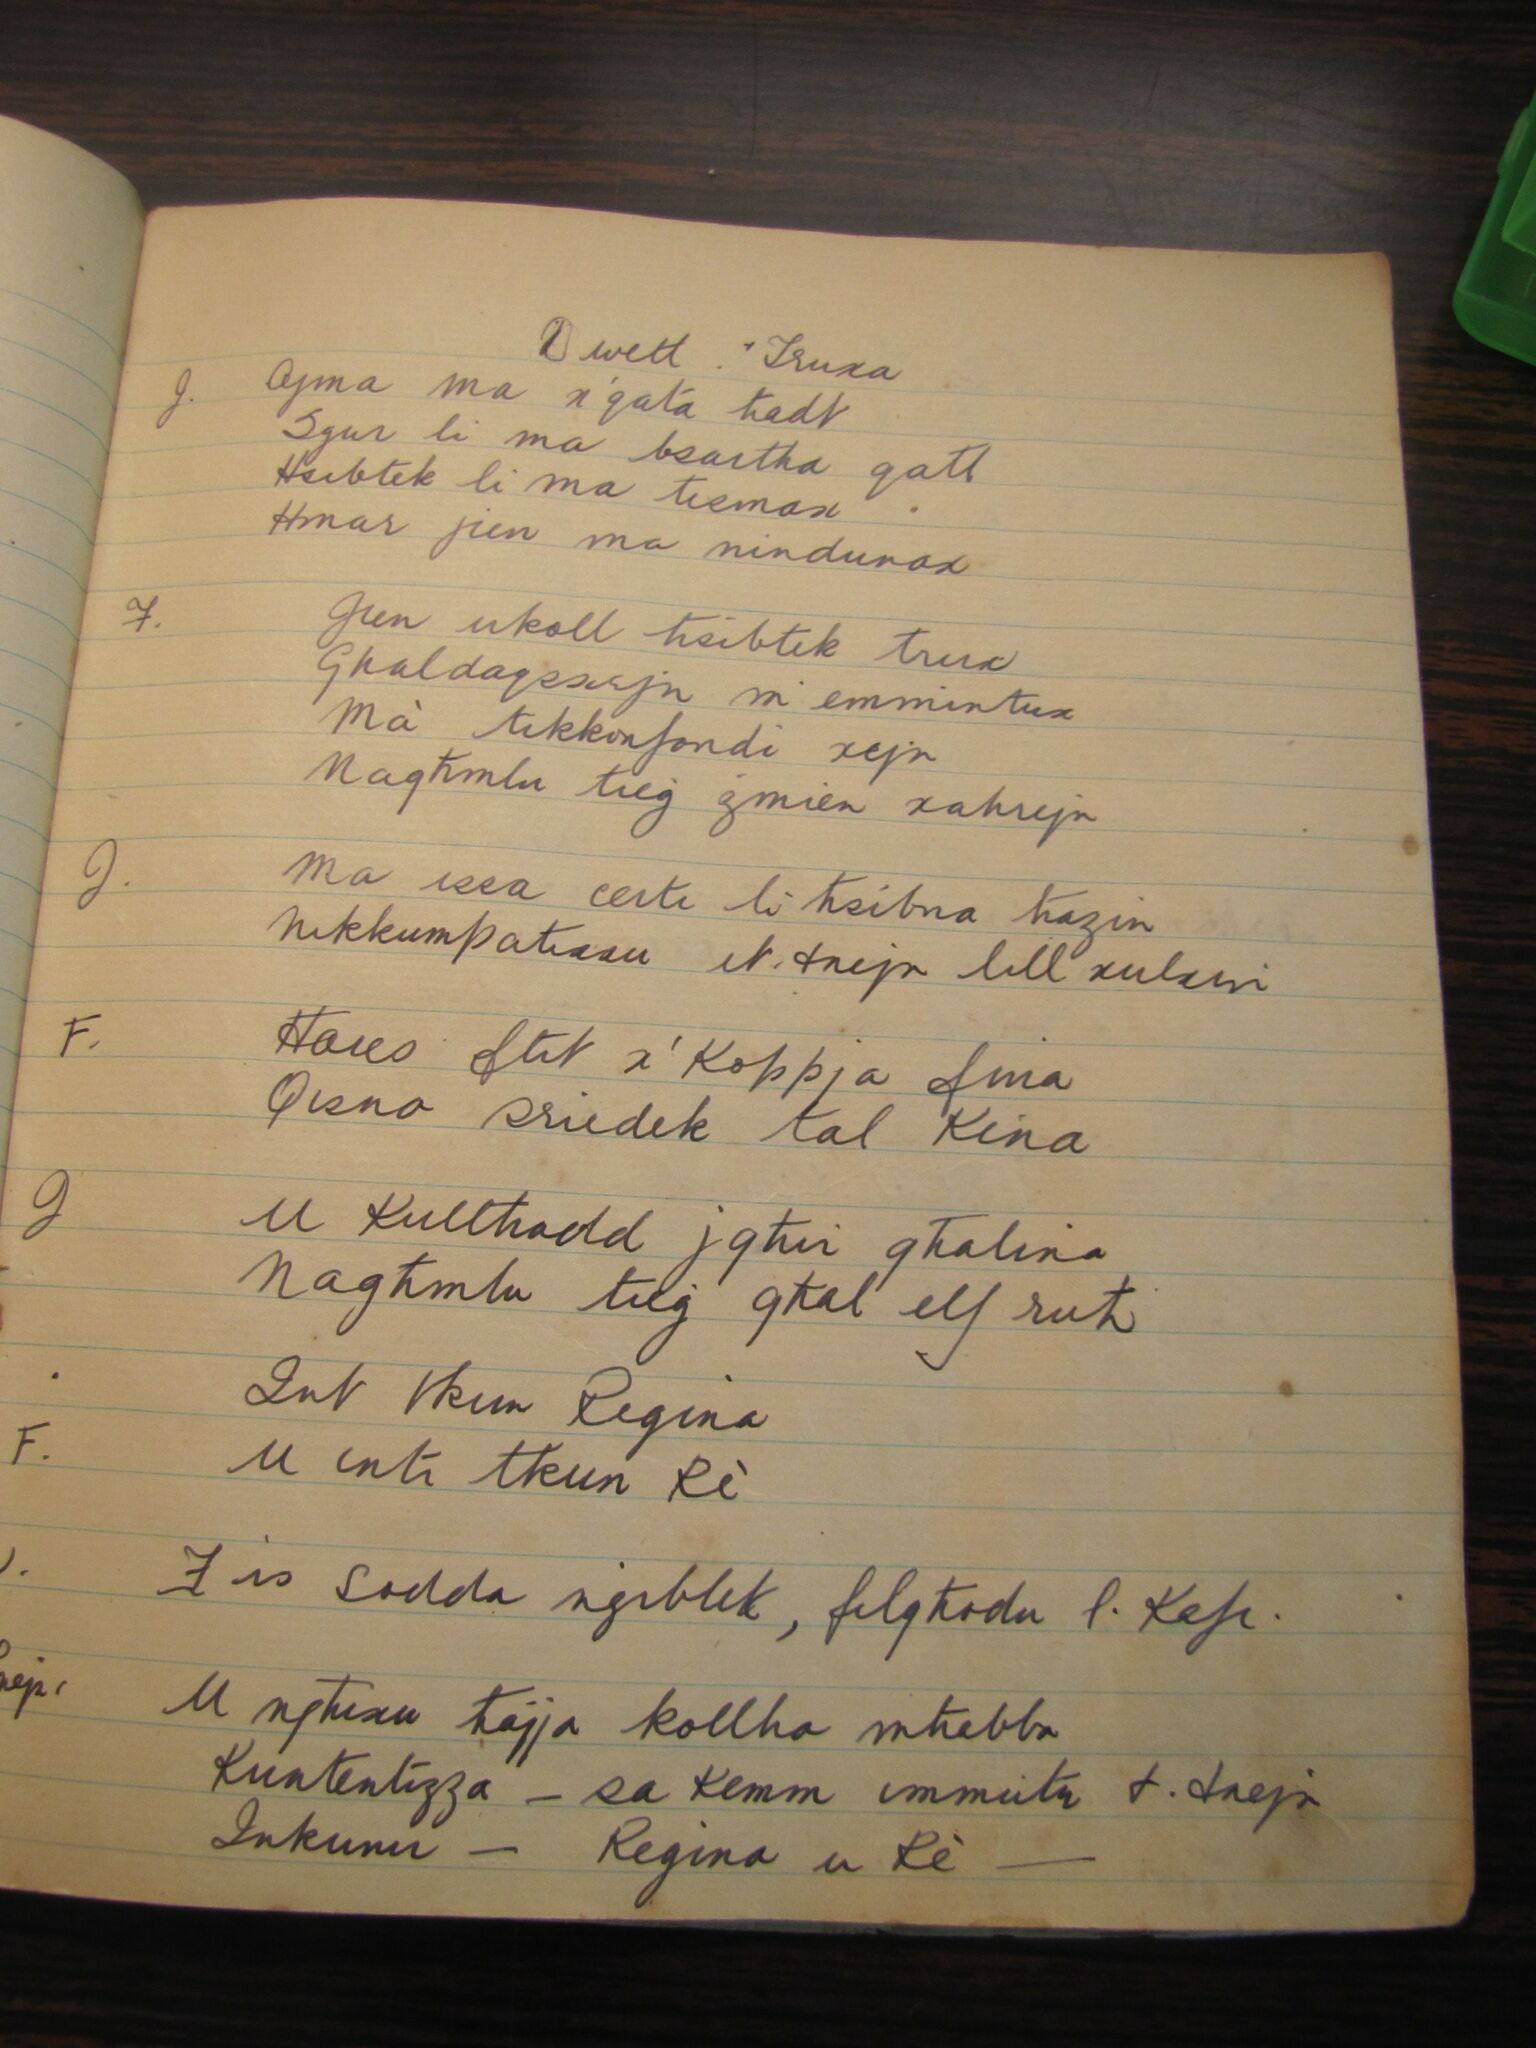 Dwett. Truxa
J. Ajma ma x'qata ħadt
Sgur li ma bsartha qatt
Ħsibtek li ma tismax
Ħmar jien ma nindunax
F. Jien ukoll ħsibtek trux
Għaldaqsxejn m'emmintux
Mà tikkonfondi xejn
Nagħmlu tieġ żmien xahrejn
J. Ma issa certi li ħsibna ħazin
Nikkumpatixxu it.tnejn lill xulxin
F. Ħares ftit x'Koppja fina
Qisna sriedek tal Kina
J U Kullħadd jgħir għalina
Nagħmlu tieġ għal elf ruħ
Int tkun Regina
F. U inti tkun Rè
J. Fis Sodda nġiblek, filgħodu l. Kafe.
nejn. U ngħixu ħajja kollha mħabba
Kuntentizza – sa Kemm immutu t. tnejn
Inkunu – Regina u Rè —